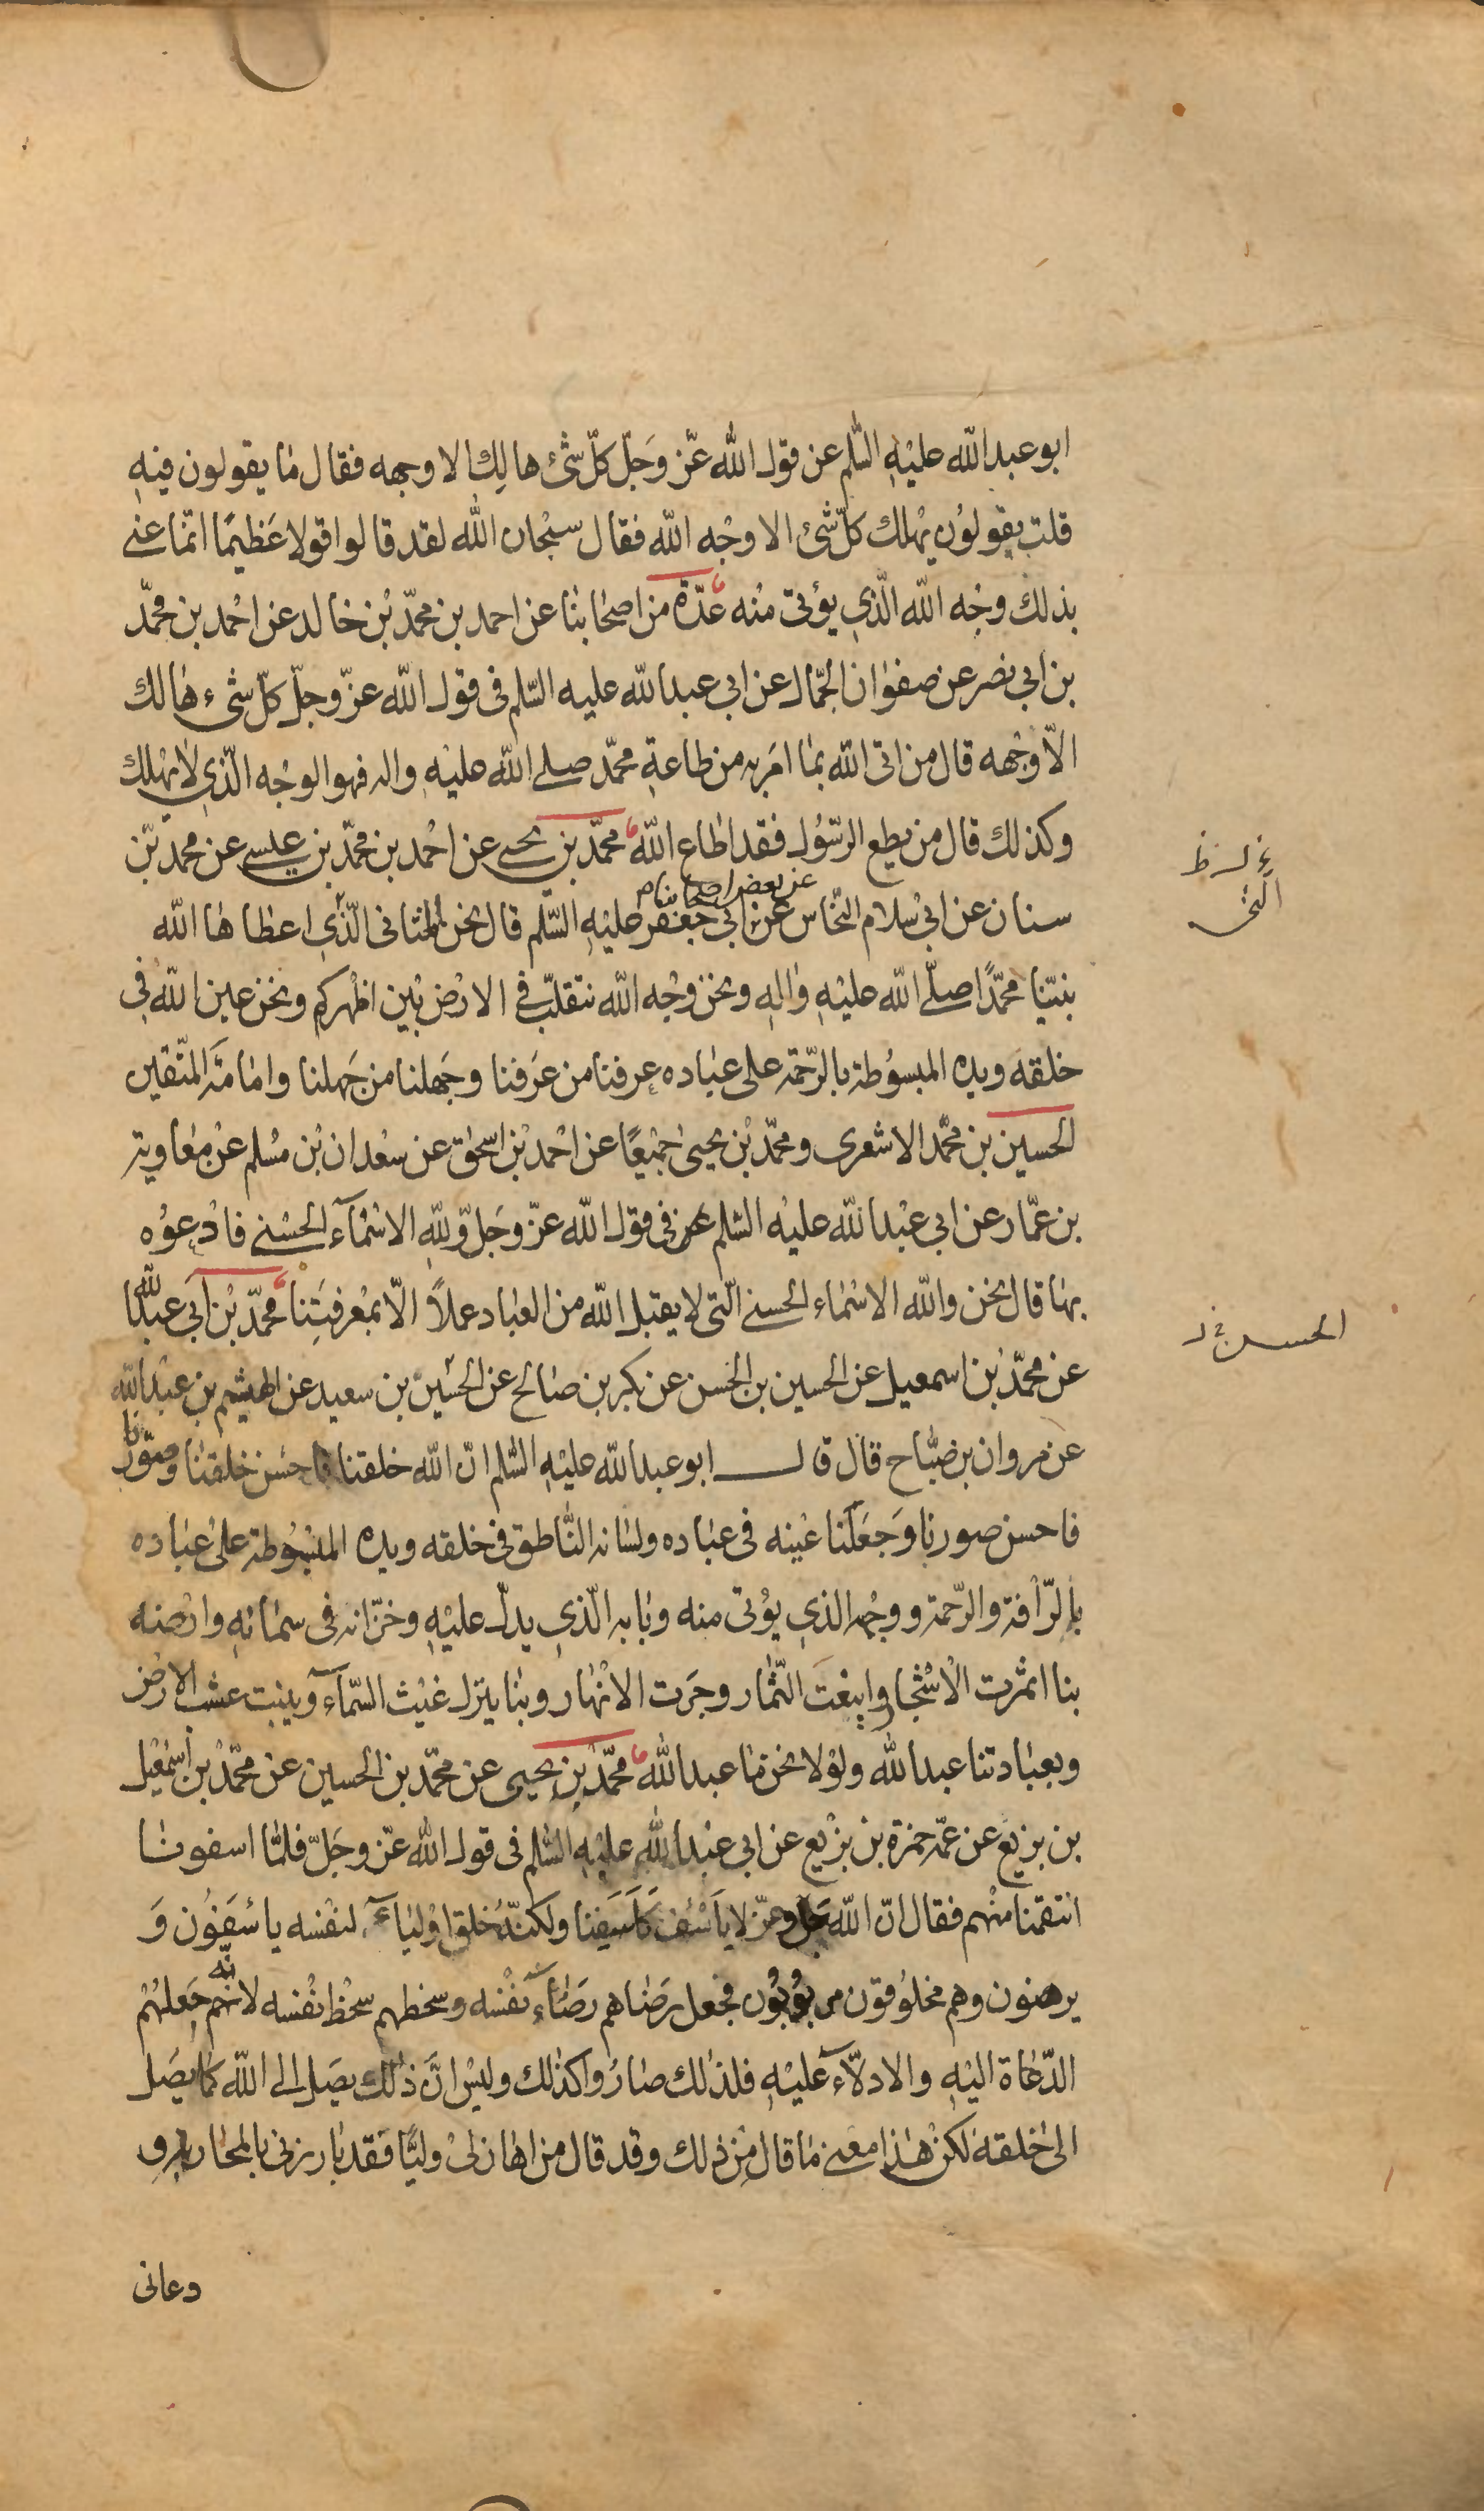 ابو عبد الله عليه السّلم عن قول الله عزّ وجلّ كلّ شئ هالك الا وجهه فقال ما يقولون فيه
قلت يقولون يهلك كلّ شئ الا وجه الله فقال سبحان الله لقد قالوا قولا عظيما انّما عنى
بذلك وجه الله الّذي يؤتى منه عدّة من اصحابنا عن احمد بن محمّد بن خالد عن احمد بن محمّد
بن ابي نصر عن صفوان الجمّال عن ابي عبد الله عليه السّلم في قول الله عزّ وجلّ كلّ شئ هالك
الّا وجهه قال من اتى الله بما امر به من طاعة محمّد صلى الله عليه واله فهو الوجه الّذي لا يهلك
وكذلك قال من يطع الرّسول فقد اطاع الله محمّد بن يحيى عن احمد بن محمّد بن عيسى عن محمد بن
سنان عن ابي سلام النّخاس عن بعض اصحابنا عن ابي جعفر عليه السّلم قال نحن المثاني الّذي اعطاها الله
التي
نبيّنا محمّدًا صلّى الله عليه واله ونحن وجه الله نتقلّب في الارض بين اظهركم ونحن عين الله في
خلقه ويده المبسوطة بالرّحمة على عباده عرفنا من عرفنا وجهلنا من جهلنا وامامة المتّقين
الحسين بن محمّد الاشعرى ومحمّد بن يحيى جميعًا عن احمد بن اسحق عن سعدان بن مسلم عن معاوية
بن عمّار عن ابي عبد الله عليه السّلم في قول الله عزّ وجلّ ولله الاسماء الحسنى فادعوه
بها قال نحن والله الاسماء الحسنى الّتى لا يقبل الله من العباد عملاً الّا بمعرفتنا محمّد بن ابي عبد الله
عن محمّد بن اسمعيل عن الحسين بن الحسن عن بكر بن صالح عن الحسين بن سعيد عن الهيثم بن عبد الله
الحسن خ ل
عن مروان بن صبّاح قال قال ابو عبد الله عليه السّلم انّ الله خلقنا فاحسن خلقنا وصوّرنا
فاحسن صورنا وجعلنا عينه فى عباده ولسانه النّاطق فى خلقه ويده المبسوطة على عباده
بالرّافة والرّحمة ووجهه الذي يؤتى منه وبابه الّذي يدلّ عليه وخزّانه فى سمائه وارضه
بنا اثمرت الاشجار وايبعت الثّمار وجرت الانهار وبنا ينزل غيث السّماء وينبت عشب الارض
وبعبادتنا عبد الله ولولا نحن ما عبد الله محمّد بن يحيى عن محمّد بن الحسين عن محمّد بن اسمعيل
بن بزيع عن عمّه حمزة بن بزيع عن ابي عبد الله عليه السّلم فى قول الله عزّ وجلّ فلمّا اسفونا
انتقمنا منهم فقال انّ الله جل وعزّ لا يأسف كأسفنا ولكنّه خلق اولياء لنفسه يأسفون و
يرضون وهم مخلوقون مربوبون فجعل رضاهم رضاء نفسه وسخطهم سخط نفسه لانّه جعلهم
الدّعاة اليه والادلّاء عليه فلذلك صاروا كذلك وليس انّ ذلك يصل الى الله كما يصل
الى خلقه لكن هذا معنى ما قال من ذلك وقد قال من اهان لى وليًّا فقد بارزنى بالمحاربة و
دعانى